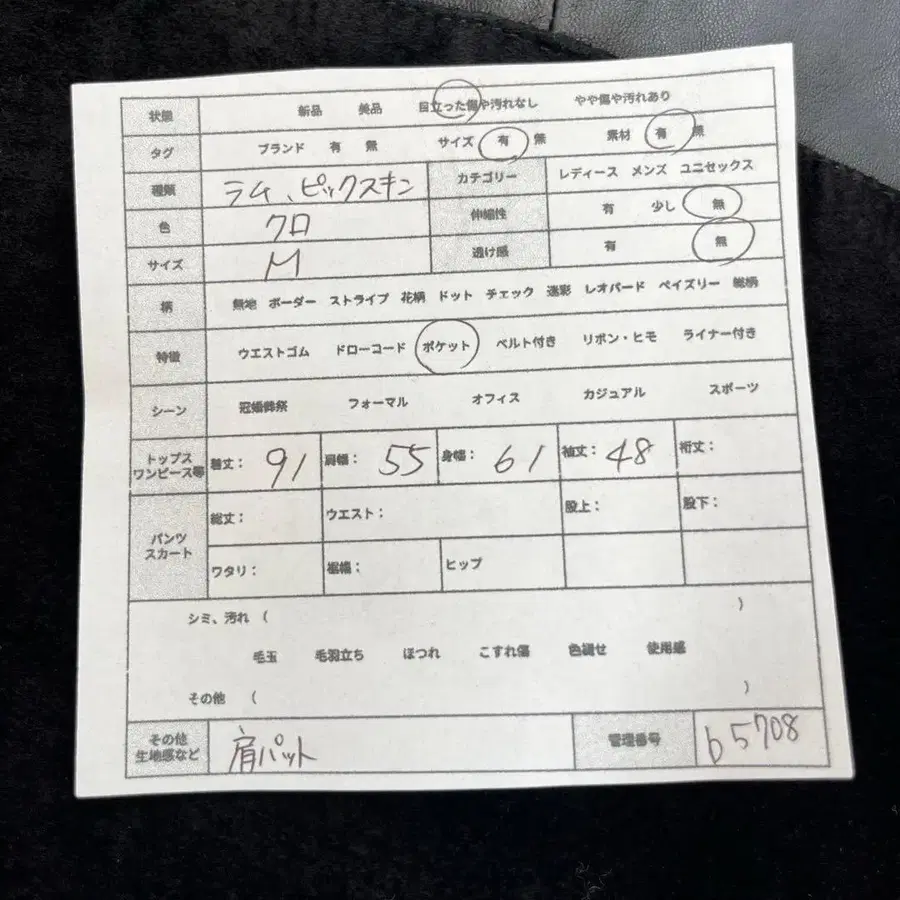 状態 新品 美品 目立った傷や汚れなし やや傷や汚れあり
タグ ブランド 有 無 サイズ 有 無 素材 有 無
種類 ラム、ピックスキン カテゴリー レディース メンズ ユニセックス
色 クロ 伸縮性 有 少し 無
サイズ M 透け感 有 無
柄 無地 ボーダー ストライプ 花柄 ドット チェック 迷彩 レオパード ペイズリー 総柄
特徴 ウエストゴム ドローコード ポケット ベルト付き リボン・ヒモ ライナー付き
シーン 冠婚葬祭 フォーマル オフィス カジュアル スポーツ
トップス
ワンピース等 着丈： 91 肩幅： 55 身幅： 61 袖丈： 48 裄丈：
パンツ
スカート 総丈： ウエスト： 股上： 股下：
ワタリ： 裾幅： ヒップ
シミ、汚れ （ ）
毛玉 毛羽立ち ほつれ こすれ傷 色褪せ 使用感
その他 （ ）
その他
生地感など 肩パット 管理番号 b5708